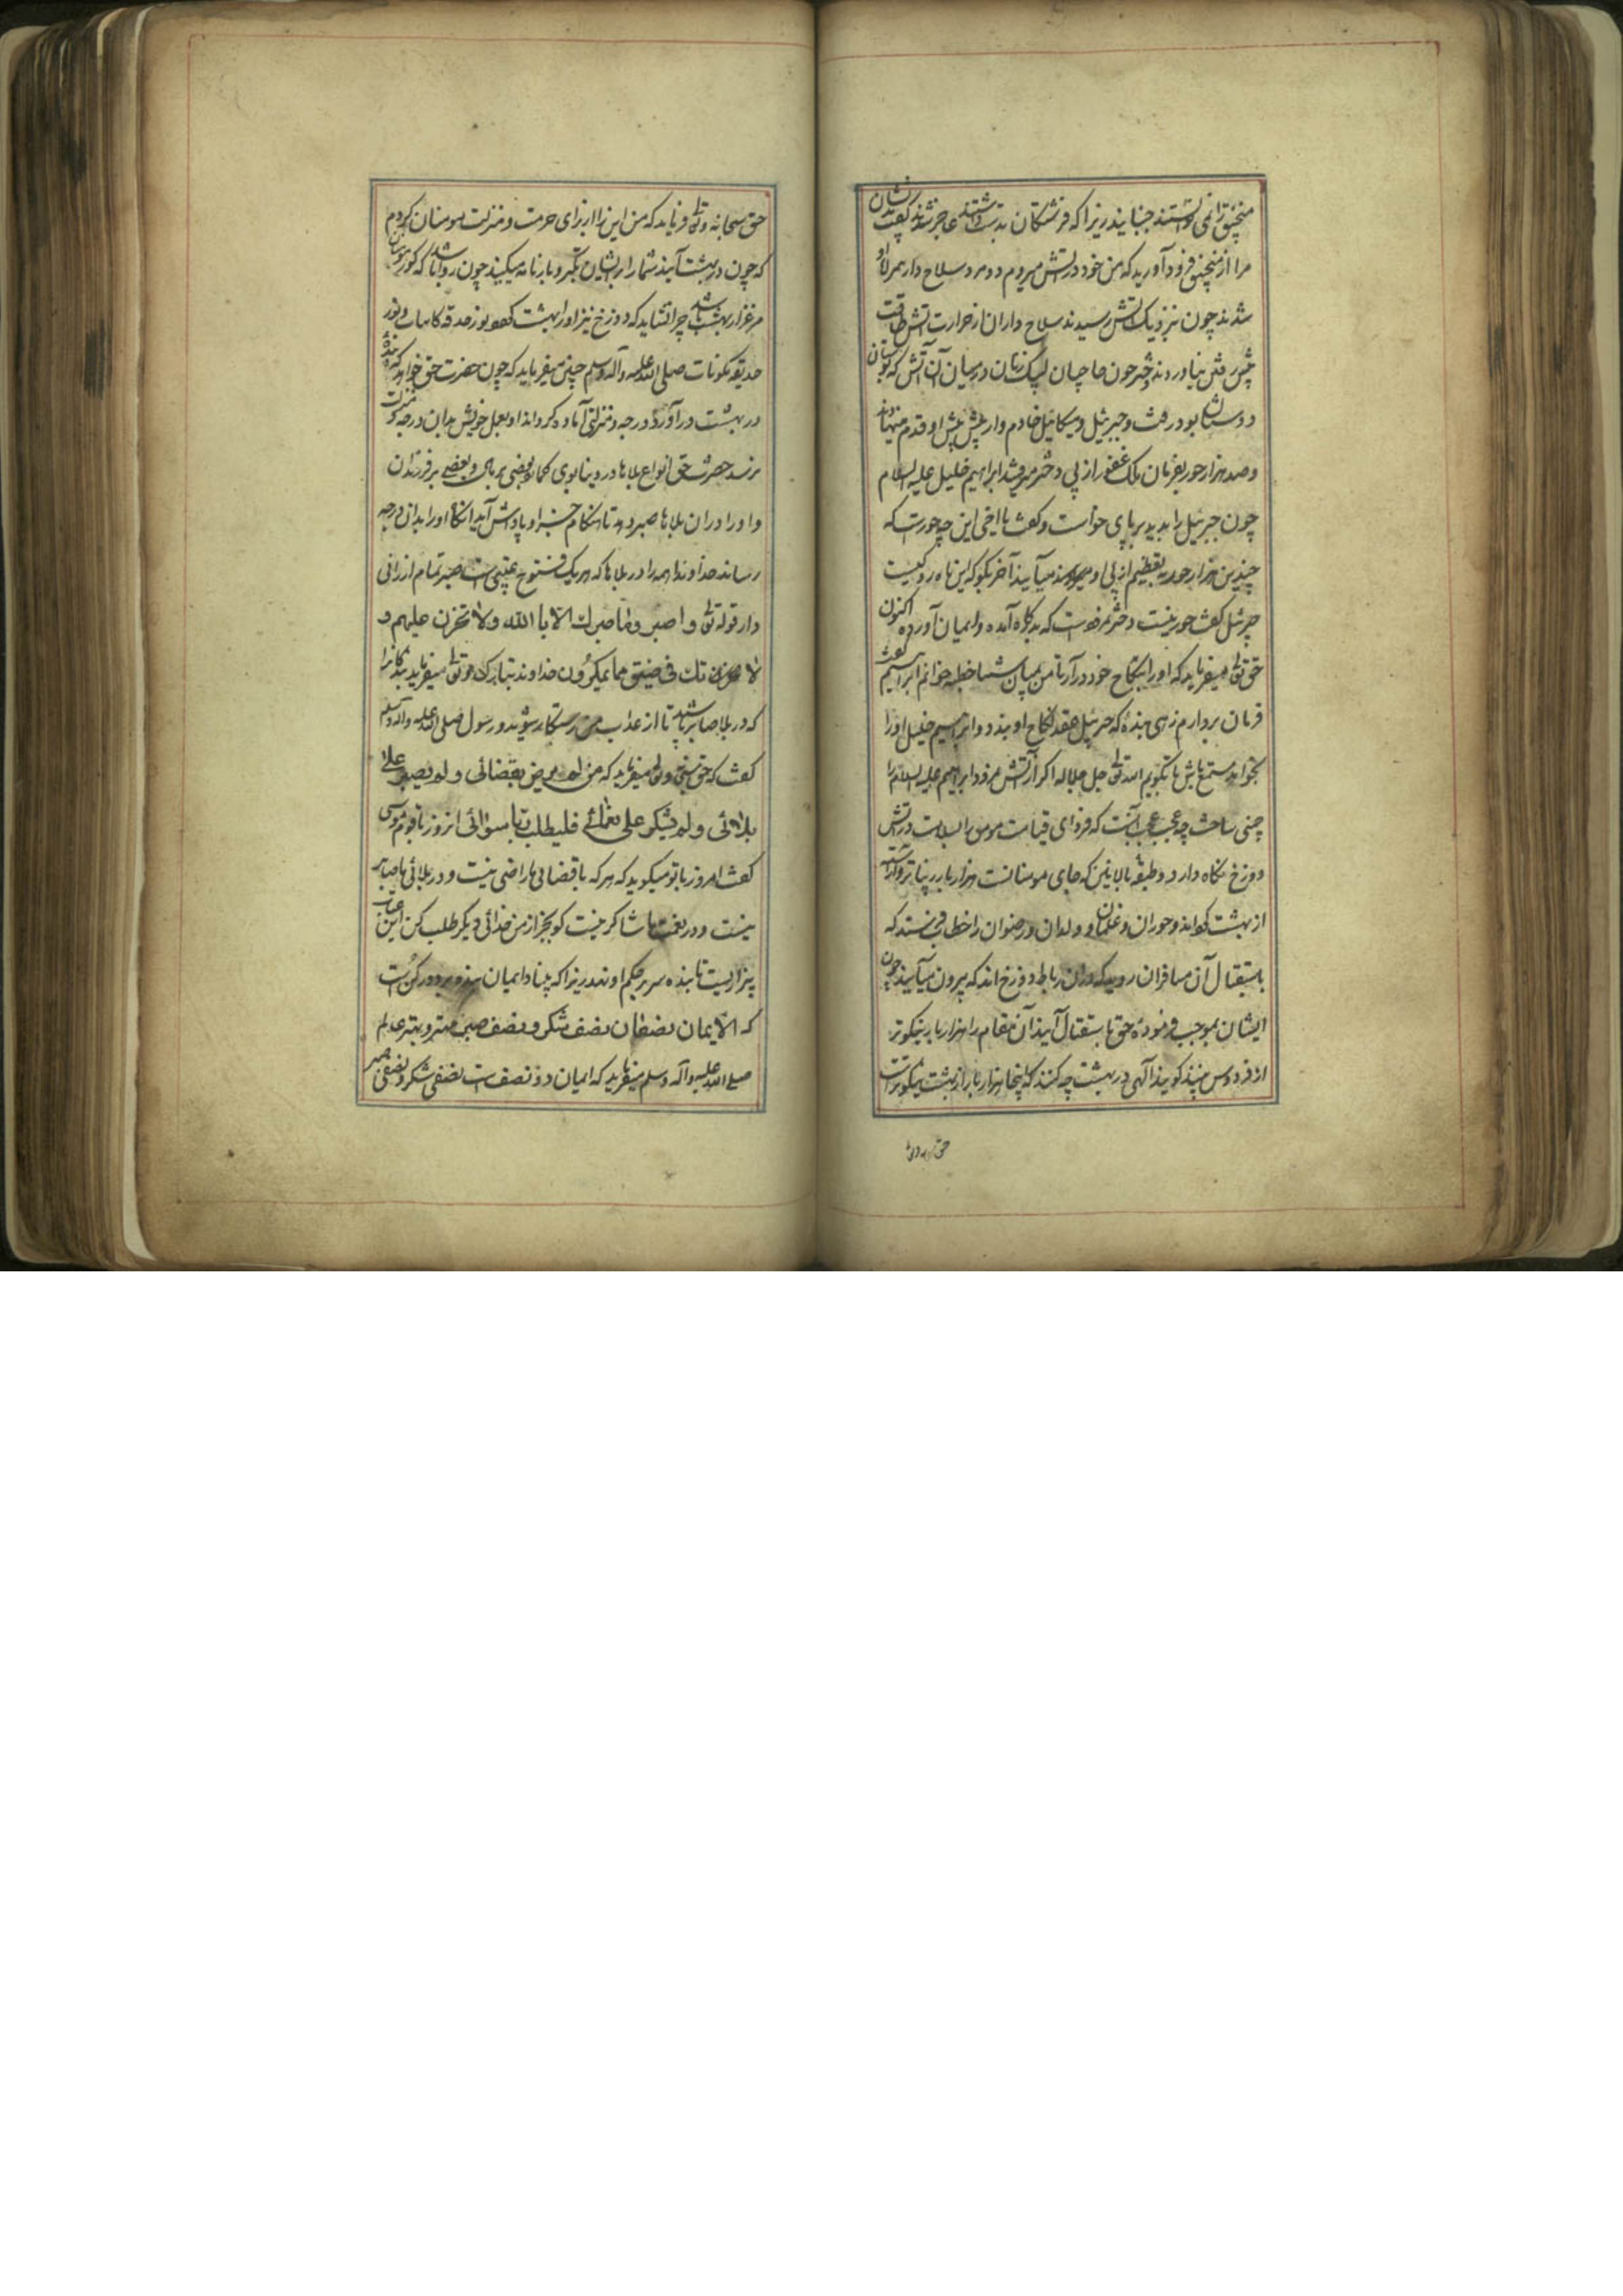 منجنیق را نمی توانستند جنبانید زیرا که فرشتگان بدست داشتند عاجز شدند گفت
مرا از منجنیق فرود آورید که من خود در آتش میروم دو مرد سلاح دار همراه او
شدند چون نزدیک آتش رسیدند سلاح داران از حرارت آتش طاقت
پیش رفتن نیاوردند دختر چون حاجیان لبیک زنان در میان آن آتش که بوستان
دوستان بود رفت و جبرئیل و میکائیل خادم وار پیش پیش او قدم مینهادند
و صد هزار حور بفرمان ملک غفور از پی دختر میرفتند ابراهیم خلیل علیه السلام
چون جبرئیل را بدید بر پای خواست و گفت یا اخی این چه حورست که
چندین هزار حور به تعظیم از پی او میآیند آخر بگو که این ماه رو کیست
جبرئیل گفت حور نیست دختر نمرودست که بدرگاه آمده و ایمان آورده اکنون
حق تعالی میفرماید که او را بنکاح خود در آر تا من بمیان شما خطبه خوانم ابراهیم گفت
فرمان بردارم زهی بنده که جبرئیل عقد نکاح او بندد و ابراهیم خلیل او را
بخواهد مستمع باش تا بگویم الله تعالی جل جلاله اگر از آتش نمرود ابراهیم علیه السلام را
چنین ساخت چه عجب عجب آنست که فردای قیامت مومن را بسلامت در آتش
دوزخ نگاه دارد و طبقه بالایین که جای مومنانست هزار بار زیباتر و آراسته
از بهشت گرداند و حوران و غلمان و ولدان و رضوان را خطاب فرستد که
باستقبال آن مسافران روید که در آن رباط دوزخ اند که بیرون میآیند چون
ایشان بموجب فرموده حق باستقبال آیند آن مقام را هزار بار نیکوتر
از فردوس بینند گویند الهی در بهشت چه کنند که اینجا هزار بار از بهشت نیکوترست
حق سبحانه و تعالی فرماید که من این را از برای حرمت و منزلت مومنان کردم
که چون در بهشت آیند شما را بر ایشان تکبر و بارنامه میکنید چون روا باشد که گور مومنان
مرغزار بهشت باشد چرا نشاید که دوزخ نیز او را بهشت گردد نور حدقه کاینات و نور
حدیقه مکونات صلی الله علیه و آله و سلم چنین میفرماید که چون حضرت حق خواهد که بنده
در بهشت در آورد و درجه و منزلتی آماده گرداند او بعمل خویش بدان درجه و منزلت
نرسد حضرت حق انواع بلاها در دنیا بوی گمارد بعضی بر مال و بعضی بر فرزندان
و او را در آن بلاها صبر دهد تا هنگام جزا و پاداش آید آنگاه او را بدان درجه
رساند خداوندا همه را در بلاها که هر یک فتوح غیبی ست صبر تمام ارزانی
دار قوله تعالی و اصبر وما صبرك الا بالله ولا تحزن علیهم و
لا تك فی ضیق مما یمکرون خداوند تبارک و تعالی میفرماید بندگانرا
که در بلا صابر باشید تا از عذاب من رستگار شوید و رسول صلی الله علیه و آله وسلم
گفت که حق سبحانه و تعالی میفرماید که من لم یرض بقضائی و لم یصبر علی
بلائی و لم یشکر علی نعمائی فلیطلب ربا سوائی
گفت امروز با تو میگوید که هر که با قضای ما راضی نیست و در بلائی ما صابر
نیست و در نعمت ما شاکر نیست گو بجز از من خدائی دیگر طلب کن این
بیزاریست تا بنده سر بر حکم او نهد زیرا که بنیاد ایمان بر دو رکن ست
که الایمان نصفان نصف شکر و نصف صبر مهتر و بهتر عالم
صلی الله علیه و آله و سلم میفرماید که ایمان دو نصف ست نصفی شکر و نصفی صبر